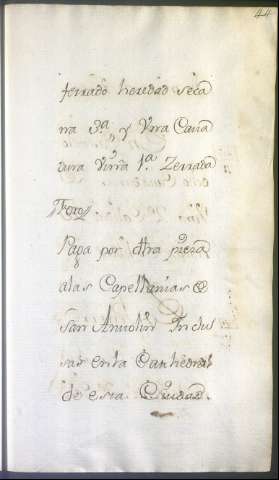 44
ferrado heredad seca
na 3ª y Una Cava
dura Viña 1ª Zerrada
Foro
Paga por dha pieza
a las Capellanias de
San Antolin Inclu
sas en la Cathedral
de esta Ciudad.